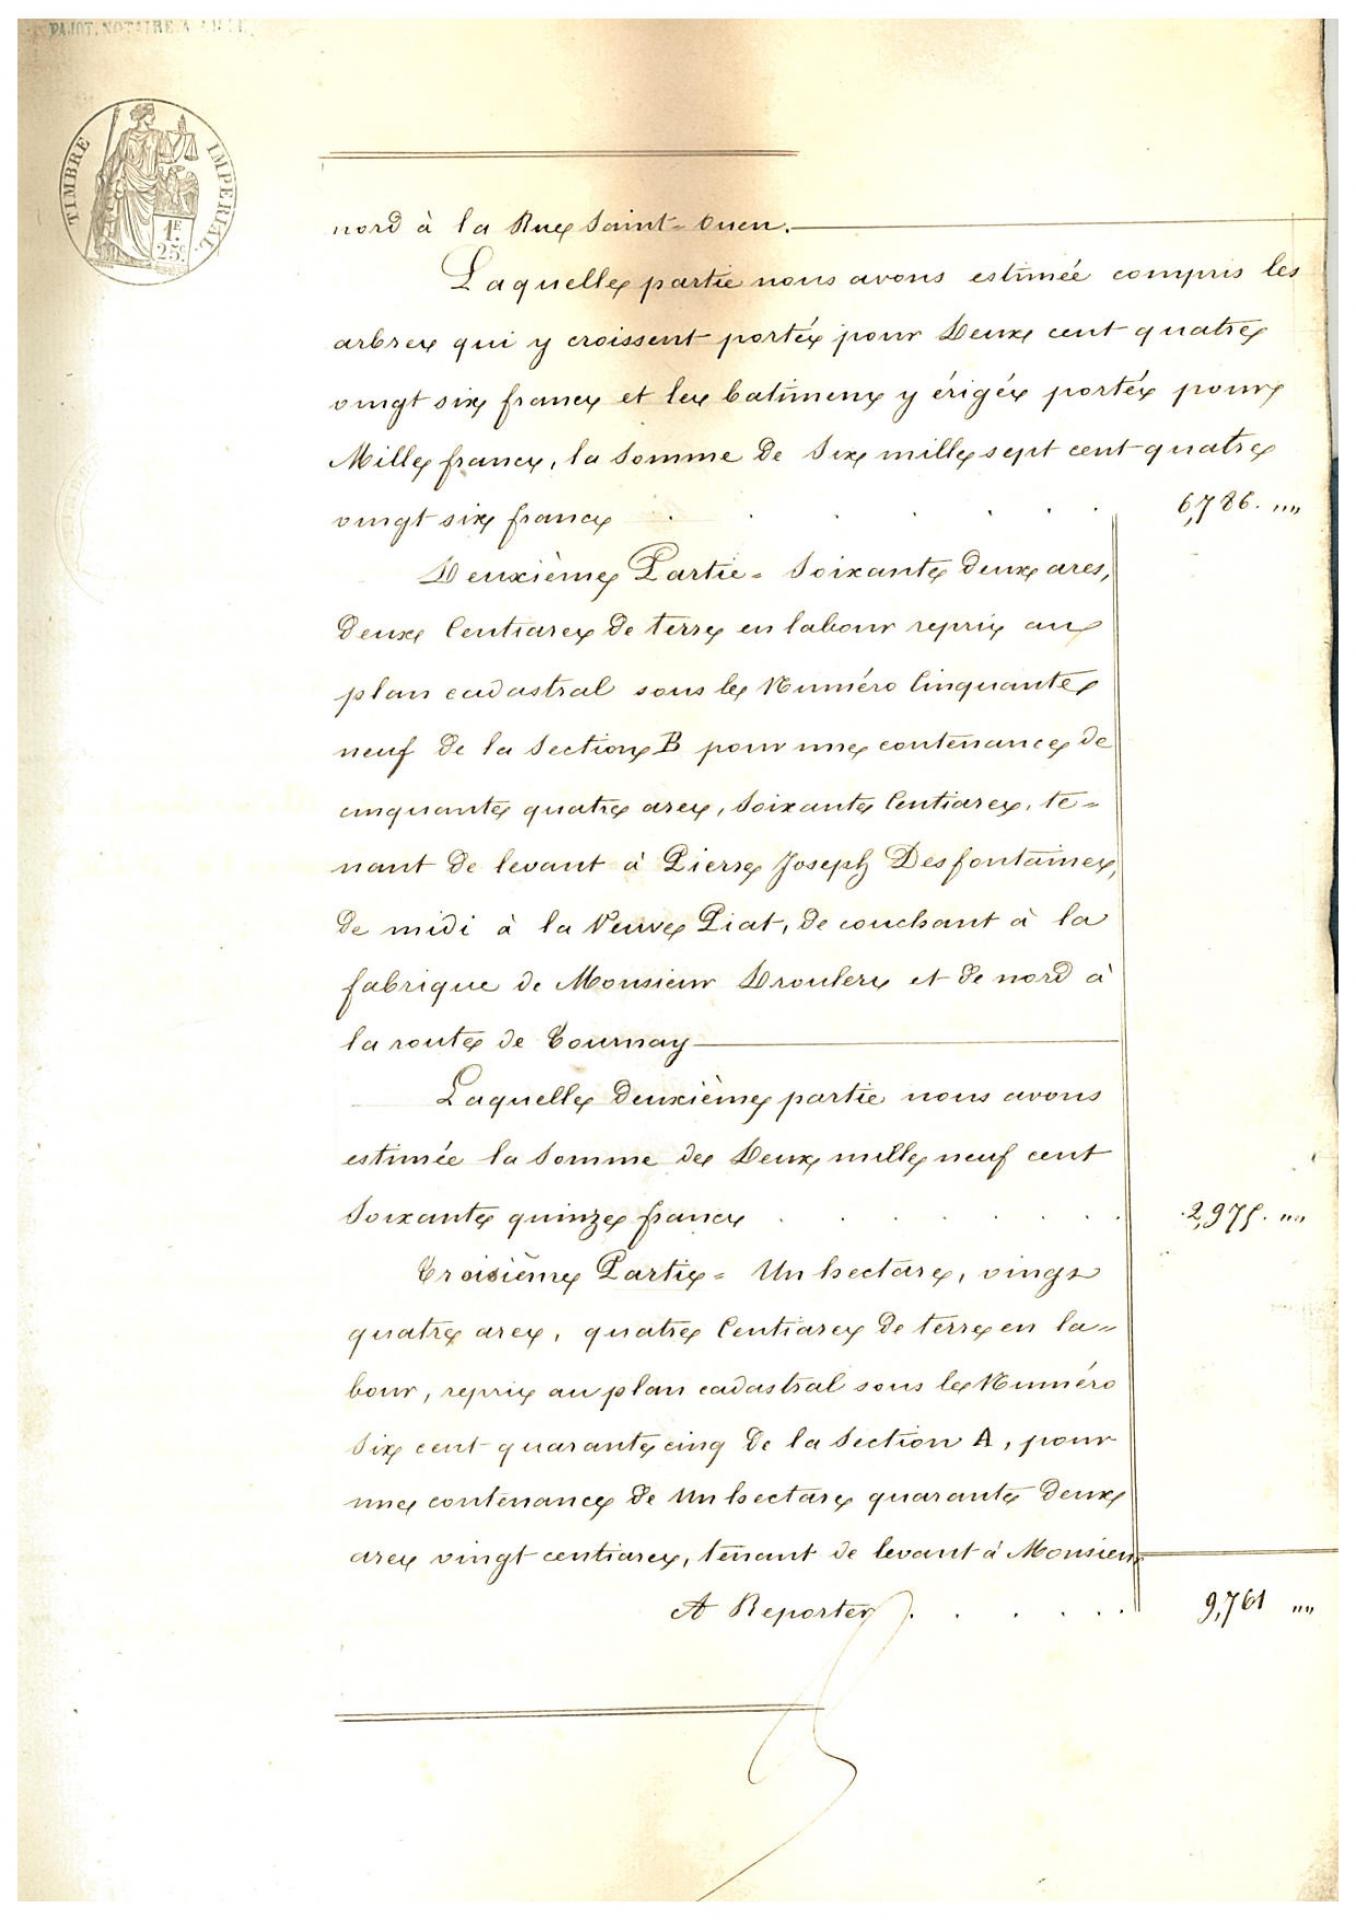 PAJOT, NOTAIRE A LILLE
TIMBRE IMPERIAL
1F
25c
nord à la Rue Saint-Ouen.
Laquelle partie nous avons estimée compris les
arbres qui y croissent portés pour Deux cent quatre
vingt six francs et les batimens y érigés portés pour
Mille francs, la Somme de Six mille sept cent quatre
vingt six francs . . . . . . . 6,786. „„
Deuxième Partie = Soixante deux ares,
deux Centiares de terre en labour repris au
plan cadastral sous le Numéro Cinquante
neuf de la Section B pour une contenance de
cinquante quatre ares, Soixante Centiares, te=
nant de levant à Pierre Joseph Desfontaines,
de midi à la Veuve Piat, de couchant à la
fabrique de Monsieur Droulers et de nord à
la route de Tournay
Laquelle deuxième partie nous avons
estimée la Somme de Deux mille neuf cent
Soixante quinze francs . . . . . . . 2,975. „„
Troisième Partie = Un hectare, vingt
quatre ares, quatre Centiares de terre en la=
bour, repris au plan cadastral sous le Numéro
Six cent quarante cinq de la Section A, pour
une contenance de Un hectare quarante deux
ares vingt centiares, tenant de levant à Monsieur
A Reporter . . . . . 9,761 „„